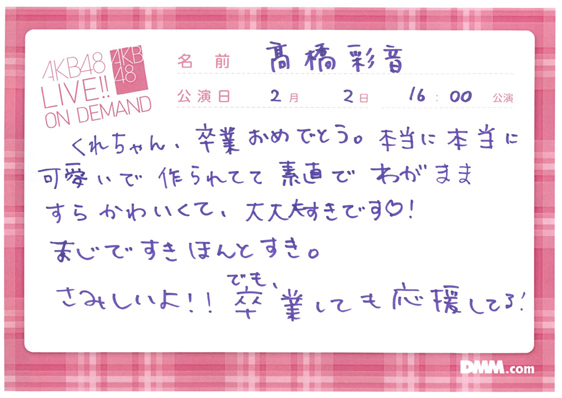 AKB48
LIVE!!
ON DEMAND
AKB
48
名前 髙橋彩音
公演日 2月 2日 16:00 公演
くれちゃん、卒業おめでとう。本当に本当に
可愛いで作られてて素直でわがまま
すらかわいくて、大大大すきです♡!
まじですきほんとすき。
さみしいよ!!でも、卒業しても応援してる!
DMM.com